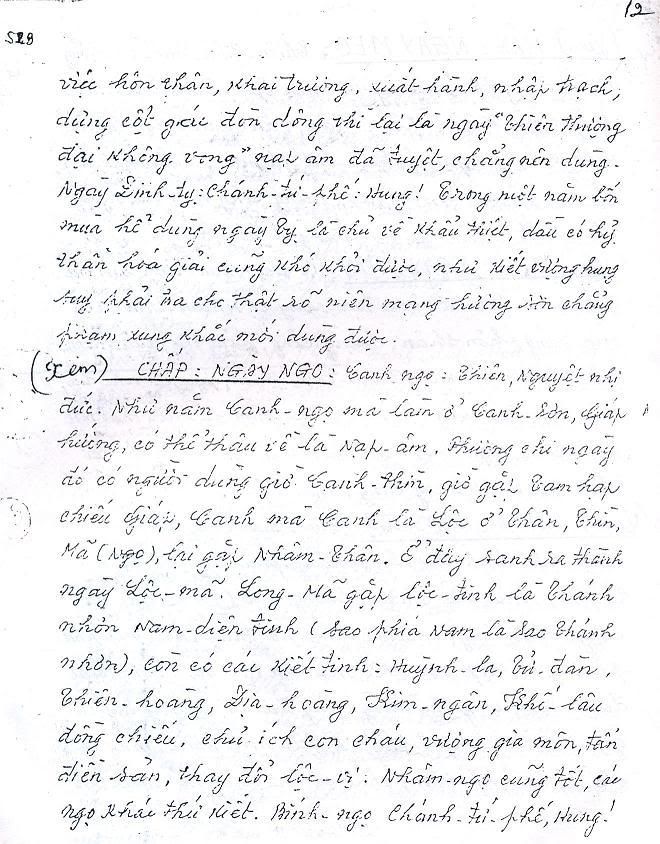 12
528
việc hôn thân, khai trương, xuất hành, nhập trạch,
dựng cột gác đòn dông thì lại là ngày "Thiên thượng
đại không vong" nạp âm đã tuyệt, chẳng nên dùng.
Ngày Đinh-tỵ: Chánh-tứ-phế: Hung! Trong một năm bốn
mùa hễ dùng ngày Tỵ là chủ về khẩu thiệt, dầu có hỷ
thần hoá giải cũng khó khỏi được, như kiết vượng hung
suy phải tra cho thật rõ niên mạng hướng sơn chẳng
phạm xung khắc mới dùng được.
(Xem) CHẤP: NGÀY NGỌ: Canh ngọ: Thiên, Nguyệt nhị
đức. Như năm Canh-ngọ mà làm ở Canh-sơn, Giáp
hướng, có thể thâu về là Nạp-âm. Thường chi ngày
đó có người dùng giờ Canh-thìn, giờ gặp Tam hạp
chiếu Giáp, Canh mà Canh là Lộc ở Thân, Thìn,
Mã (Ngọ), lại gặp Nhâm-Thân. Ở đây sanh ra thành
ngày Lộc-mã. Long-Mã gặp lộc-tinh là Thánh
nhơn Nam-diện tinh (sao phía Nam là sao Thánh
nhơn), còn có các kiết tinh: Huỳnh-la, Tử-đàn,
Thiên-hoàng, Địa-hoàng, Kim-ngân, Khố-lâu
đồng chiếu, chủ ích con cháu, vượng gia môn, tấn
điền sản, thay đổi lộc-vị. Nhâm-ngọ cũng tốt, các
ngọ khác thứ kiết. Bính-ngọ Chánh-tứ-phế, Hung!